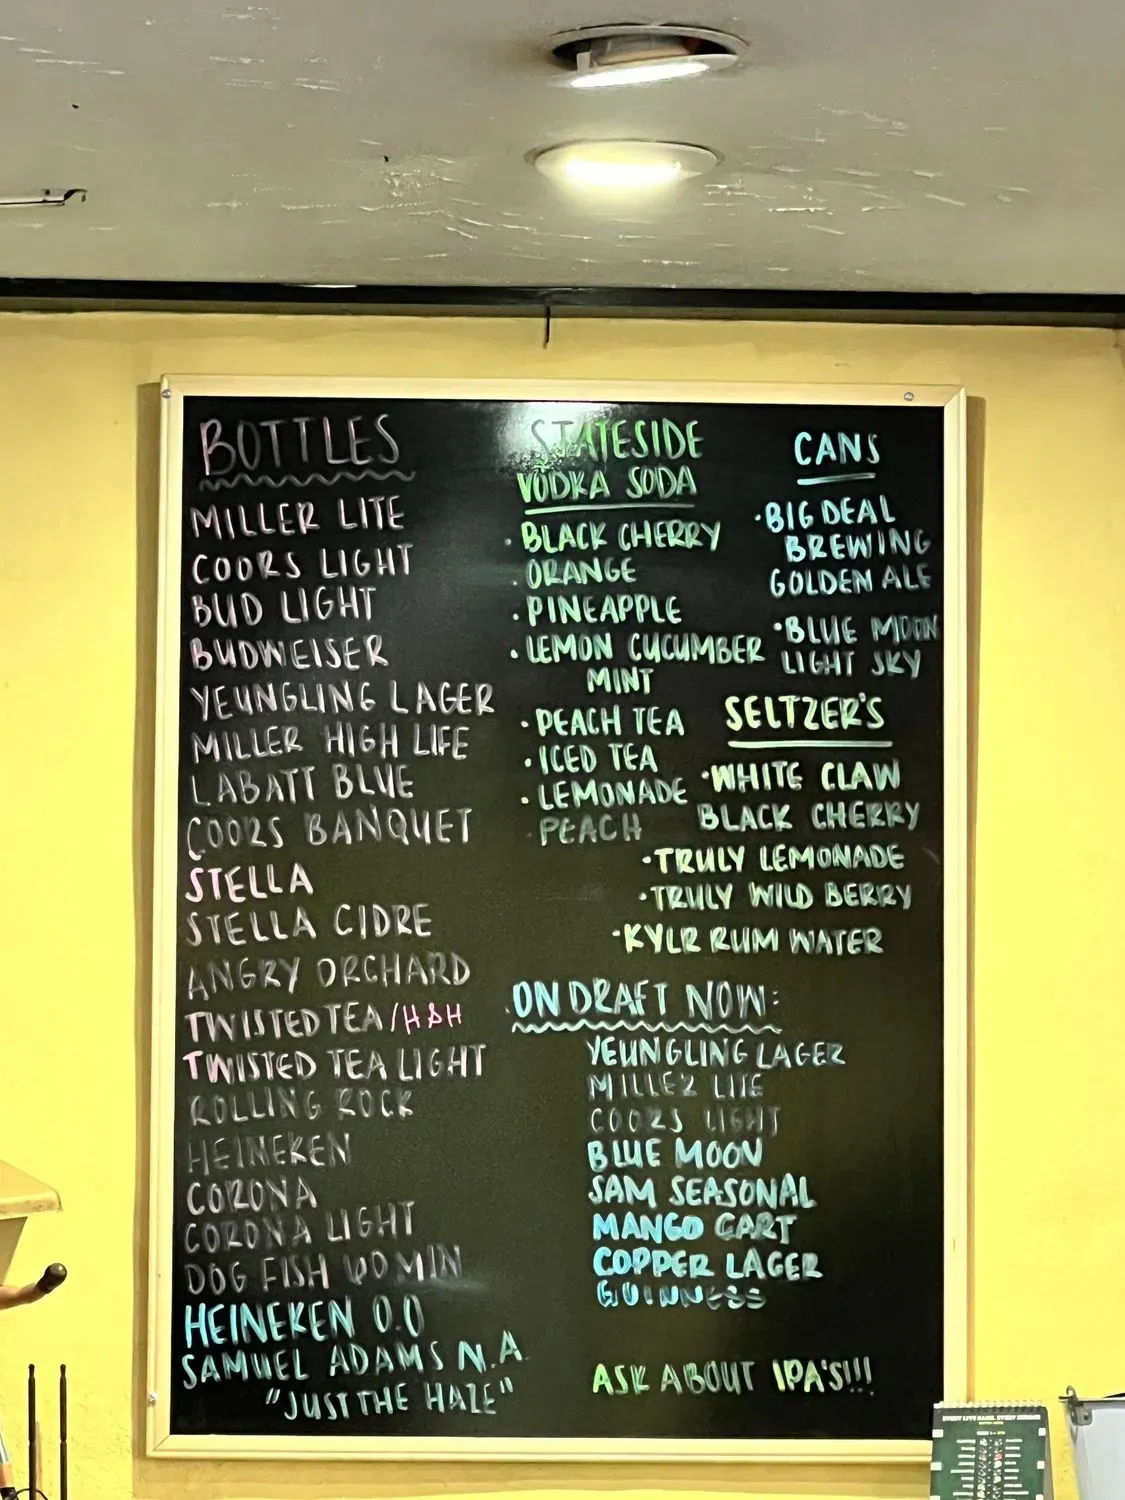 BOTTLES
MILLER LITE
COORS LIGHT
BUD LIGHT
BUDWEISER
YEUNGLING LAGER
MILLER HIGH LIFE
LABATT BLUE
COORS BANQUET
STELLA
STELLA CIDRE
ANGRY ORCHARD
TWISTED TEA/H&H
TWISTED TEA LIGHT
ROLLING ROCK
HEINEKEN
CORONA
CORONA LIGHT
DOG FISH 60 MIN
HEINEKEN 0.0
SAMUEL ADAMS N.A.
"JUST THE HAZE"
STATESIDE
VODKA SODA
· BLACK CHERRY
· ORANGE
· PINEAPPLE
· LEMON CUCUMBER
MINT
· PEACH TEA
· ICED TEA
· LEMONADE
· PEACH
CANS
· BIG DEAL
BREWING
GOLDEN ALE
· BLUE MOON
LIGHT SKY
SELTZER'S
· WHITE CLAW
BLACK CHERRY
· TRULY LEMONADE
· TRULY WILD BERRY
· KYLR RUM WATER
ON DRAFT NOW:
YEUNGLING LAGER
MILLER LITE
COORS LIGHT
BLUE MOON
SAM SEASONAL
MANGO CART
COPPER LAGER
GUINNESS
ASK ABOUT IPA'S!!!